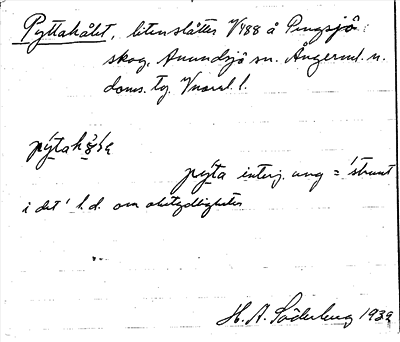 Pyttahålet, litenslåtter V488 å Pengsjö
skog, Anundsjö sn. Ångerml. n.
doms. tg, Vnorrl. l.
pýtahǫ́lə
pýta interj. ung = 'strunt
i det' l.d. om obetydligheter
H. A. Söderberg 1932